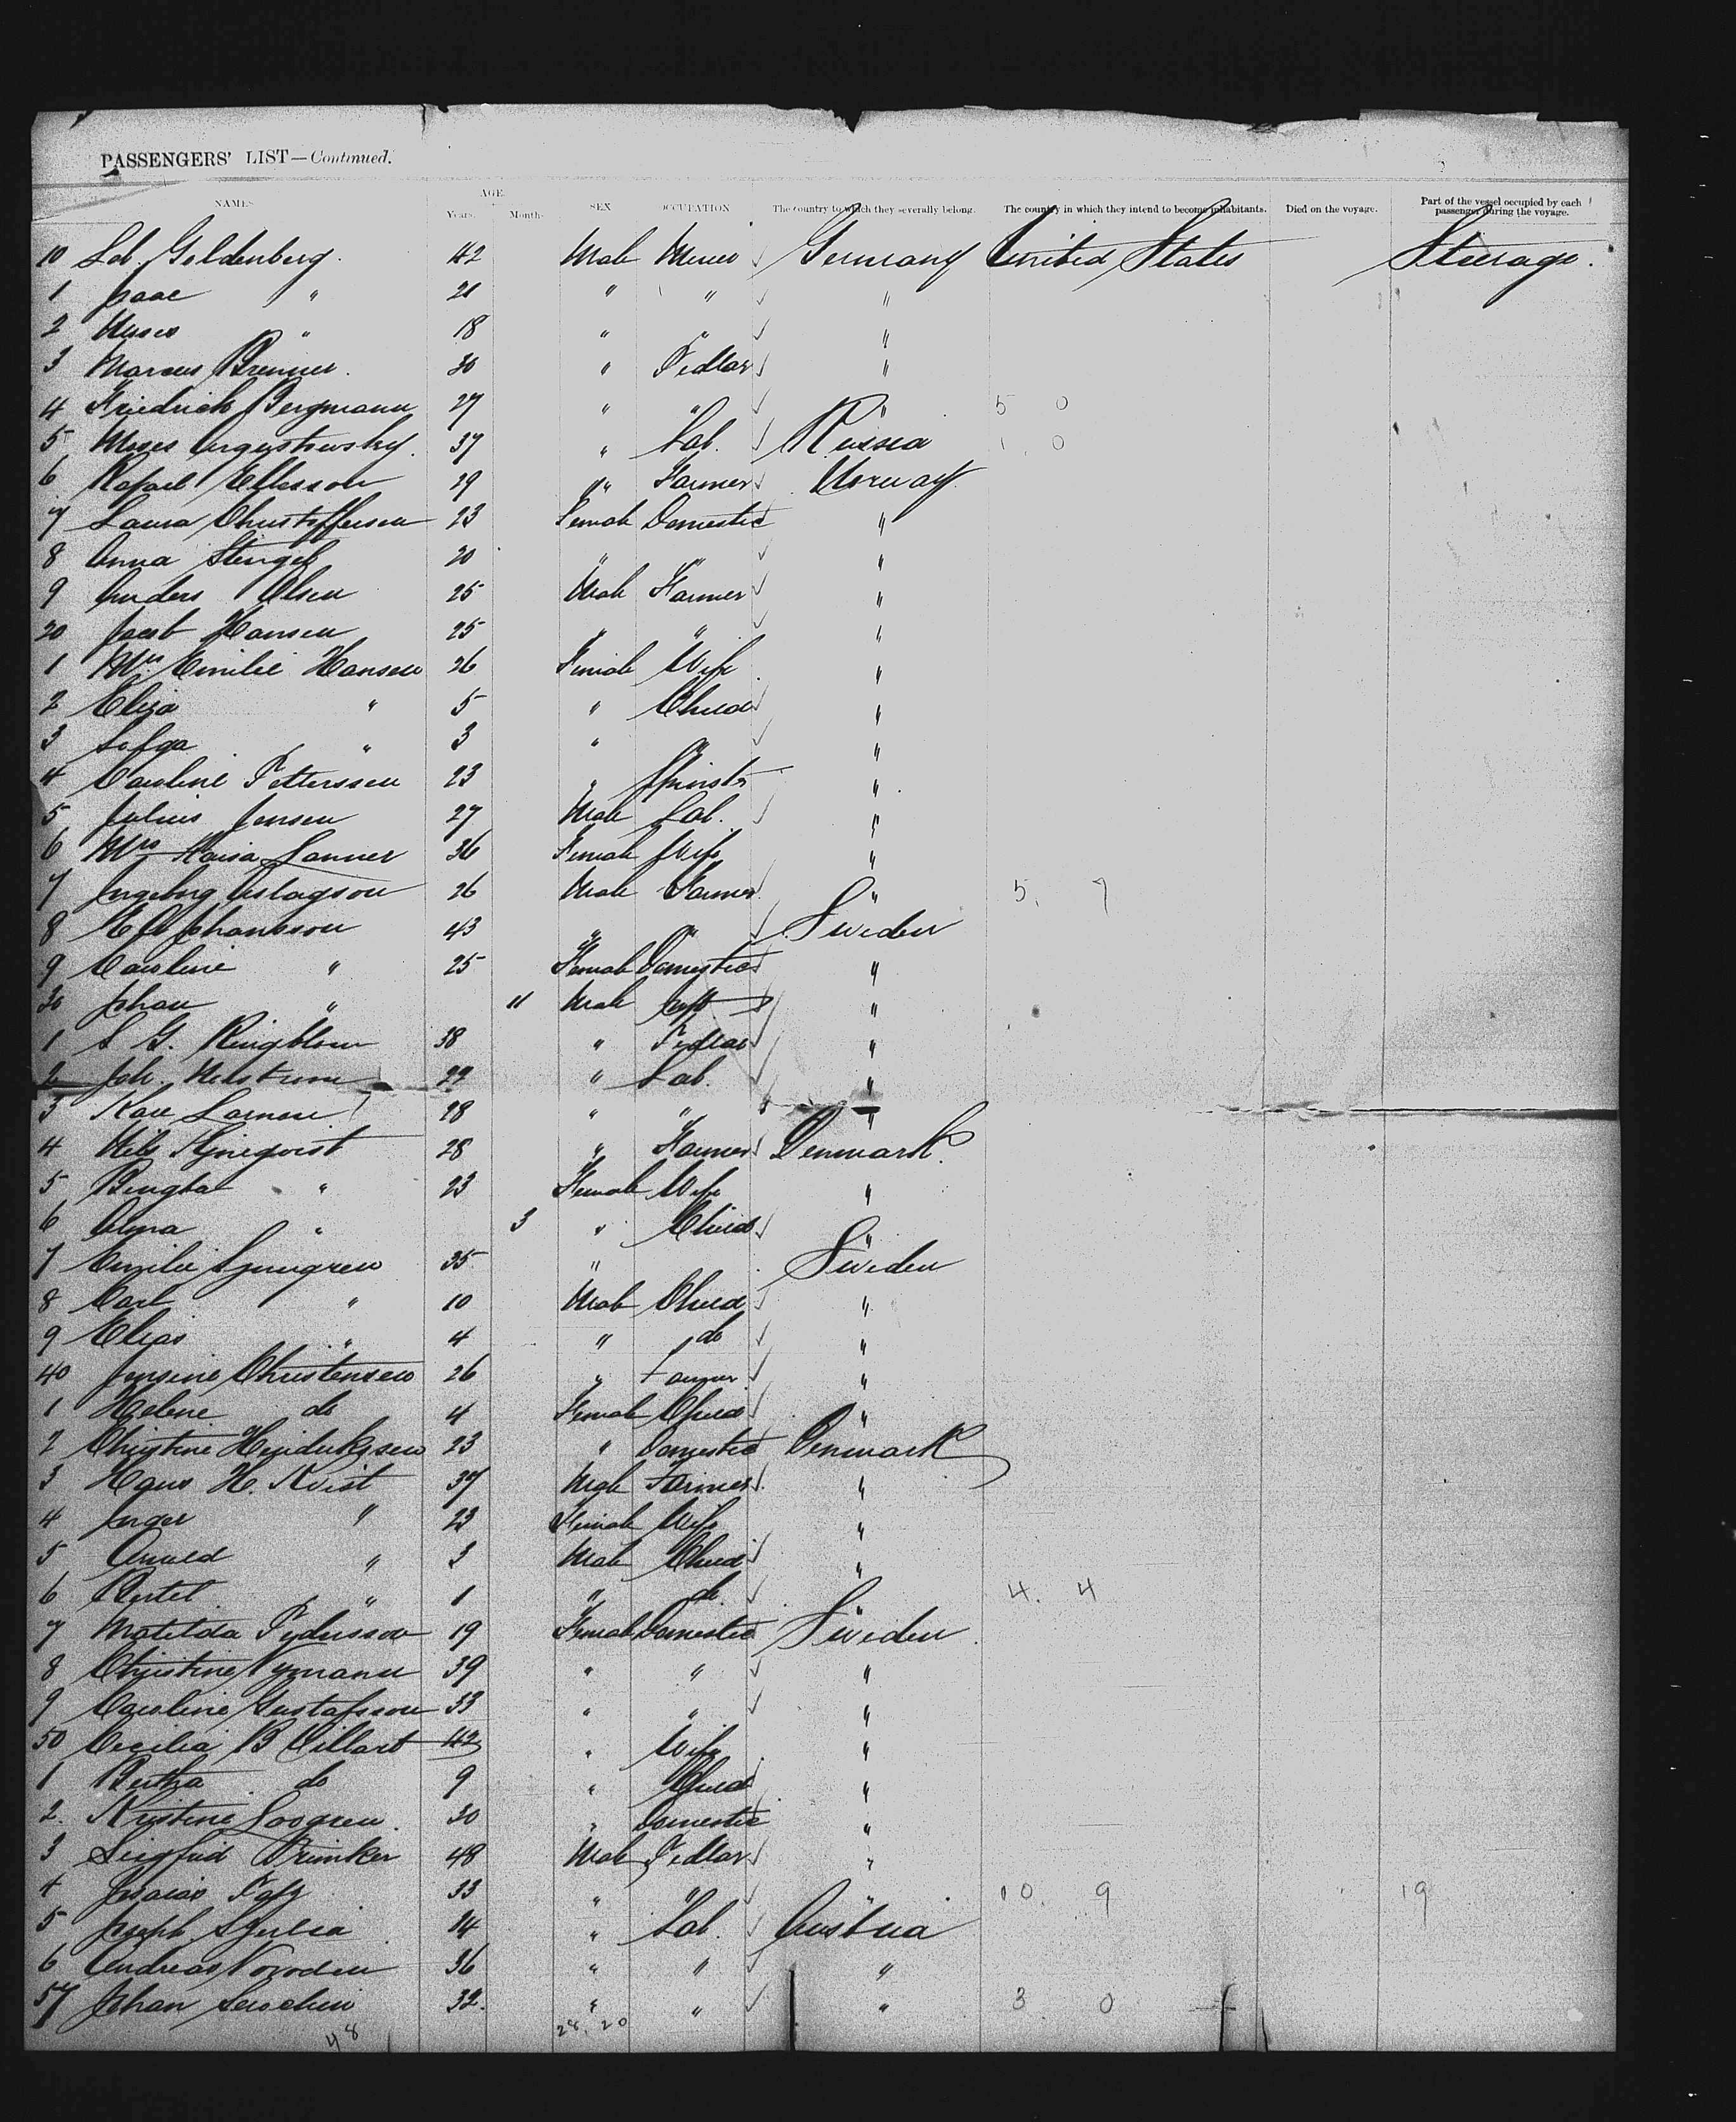 PASSENGERS' LIST—Continued.
NAMES AGE Years. Months SEX OCCUPATION The country to which they severally belong. The country in which they intend to become inhabitants. Died on the voyage. Part of the vessel occupied by each passenger during the voyage.
10 Goldenberg 42 Male Germany United States Steerage.
1 Isaac " 21 " " "
2 Moses " 18 " " "
3 Marcus Brenner. 30 " Pedlar "
4 Friedrich Bergmann 27 " " " 5 0
5 Moses 37 " Lab. Russia 1 0
6 Rafael Ellesson 29 " Farmer Norway
7 Laura Christoffersen 23 Female Domestic "
8 Anna Stengel 20 " " "
9 Anders Olsen 25 Male Farmer "
20 Jacob Hansen 25 " " "
1 Mrs Emilie Hansen 26 Female Wife "
2 Elisa " 5 " Child "
3 " 3 " " "
4 Caroline Petterssen 23 " Spinstr "
5 Julius Jensen 27 Male Lab. "
6 Mrs Lanner 36 Female Wife "
7 Ingeborg Aslagson 26 Male Farmer " 5, 7
8 Johansson 43 " " Sweden
9 Caroline " 25 Female Domestic "
30 Johan " 11 Male Inft "
1 S G. Ringblom 38 " Pedlar "
2 Joh. 22 " Lab. "
3 28 " " "
4 Nils 28 " Farmer Denmark.
5 Bengta " 23 Female Wife "
6 Alma " 3 " Child "
7 Emilie Ljungren 35 " Sweden
8 Carl " 10 Male Child "
9 Elias " 4 " do "
40 Jensine Christensen 26 " Farmer "
1 Helene do 4 Female Child "
2 Christine Hendriksen 23 " Domestic Denmark
3 Hans H. Kvist 37 Male Farmer "
4 Inger " 23 Female Wife "
5 " 3 Male Child "
6 Bertel " 1 " do. " 4. 4
7 Matilda Pederssen 19 Female Domestic Sweden
8 Christine Nymann 39 " " "
9 Caroline Gustafsson 33 " " "
50 Cecilia B 42 " Wife "
1 Bertha do 9 " Child "
2. Kristine 30 " Domestic "
3 Brinker 48 Male Pedlar "
4 33 " " " 10. 9 19
5 Joseph 14 " Lab. Austria
6 Andreas 36 " " "
57 Johan 32. " " " 3 0
48 28, 20